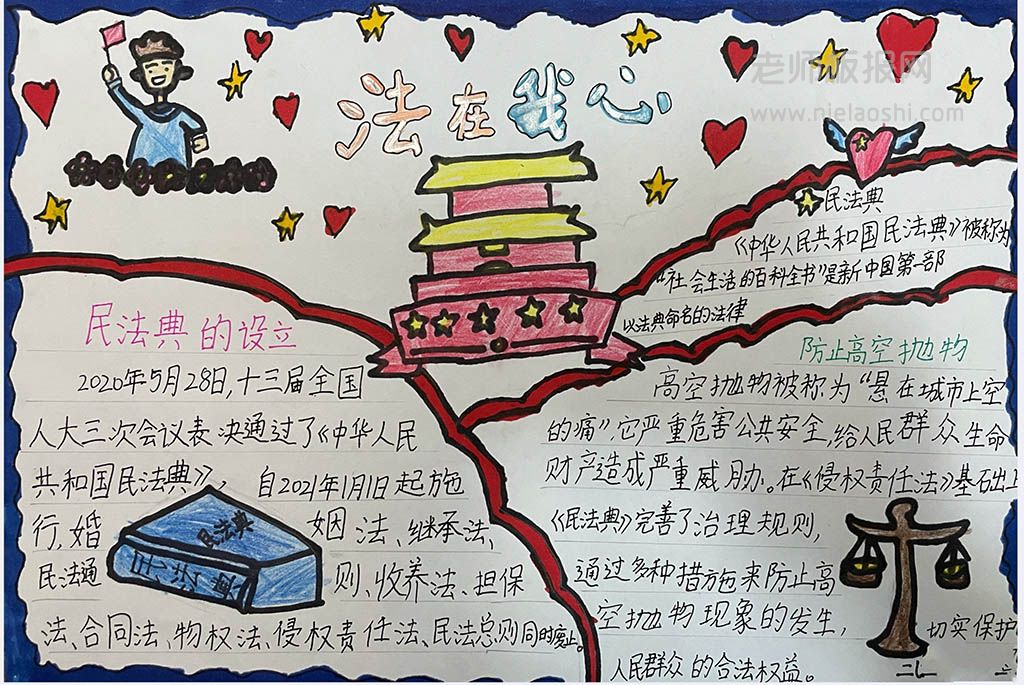 老师版报网
www.nielaoshi.com
法在我心
民法典
《中华人民共和国民法典》被称为
“社会生活的百科全书”是新中国第一部
以法典命名的法律
民法典的设立
2020年5月28日,十三届全国
人大三次会议表决通过了《中华人民
共和国民法典》,自2021年1月1日起施
行,婚姻法、继承法、
民法通则、收养法、担保
法、合同法、物权法、侵权责任法、民法总则同时废止。
民法典
民法典
防止高空抛物
高空抛物被称为“悬在城市上空
的痛”,它严重危害公共安全,给人民群众生命
财产造成严重威胁。在《侵权责任法》基础上
《民法典》完善了治理规则,
通过多种措施来防止高
空抛物现象的发生,切实保护
人民群众的合法权益。